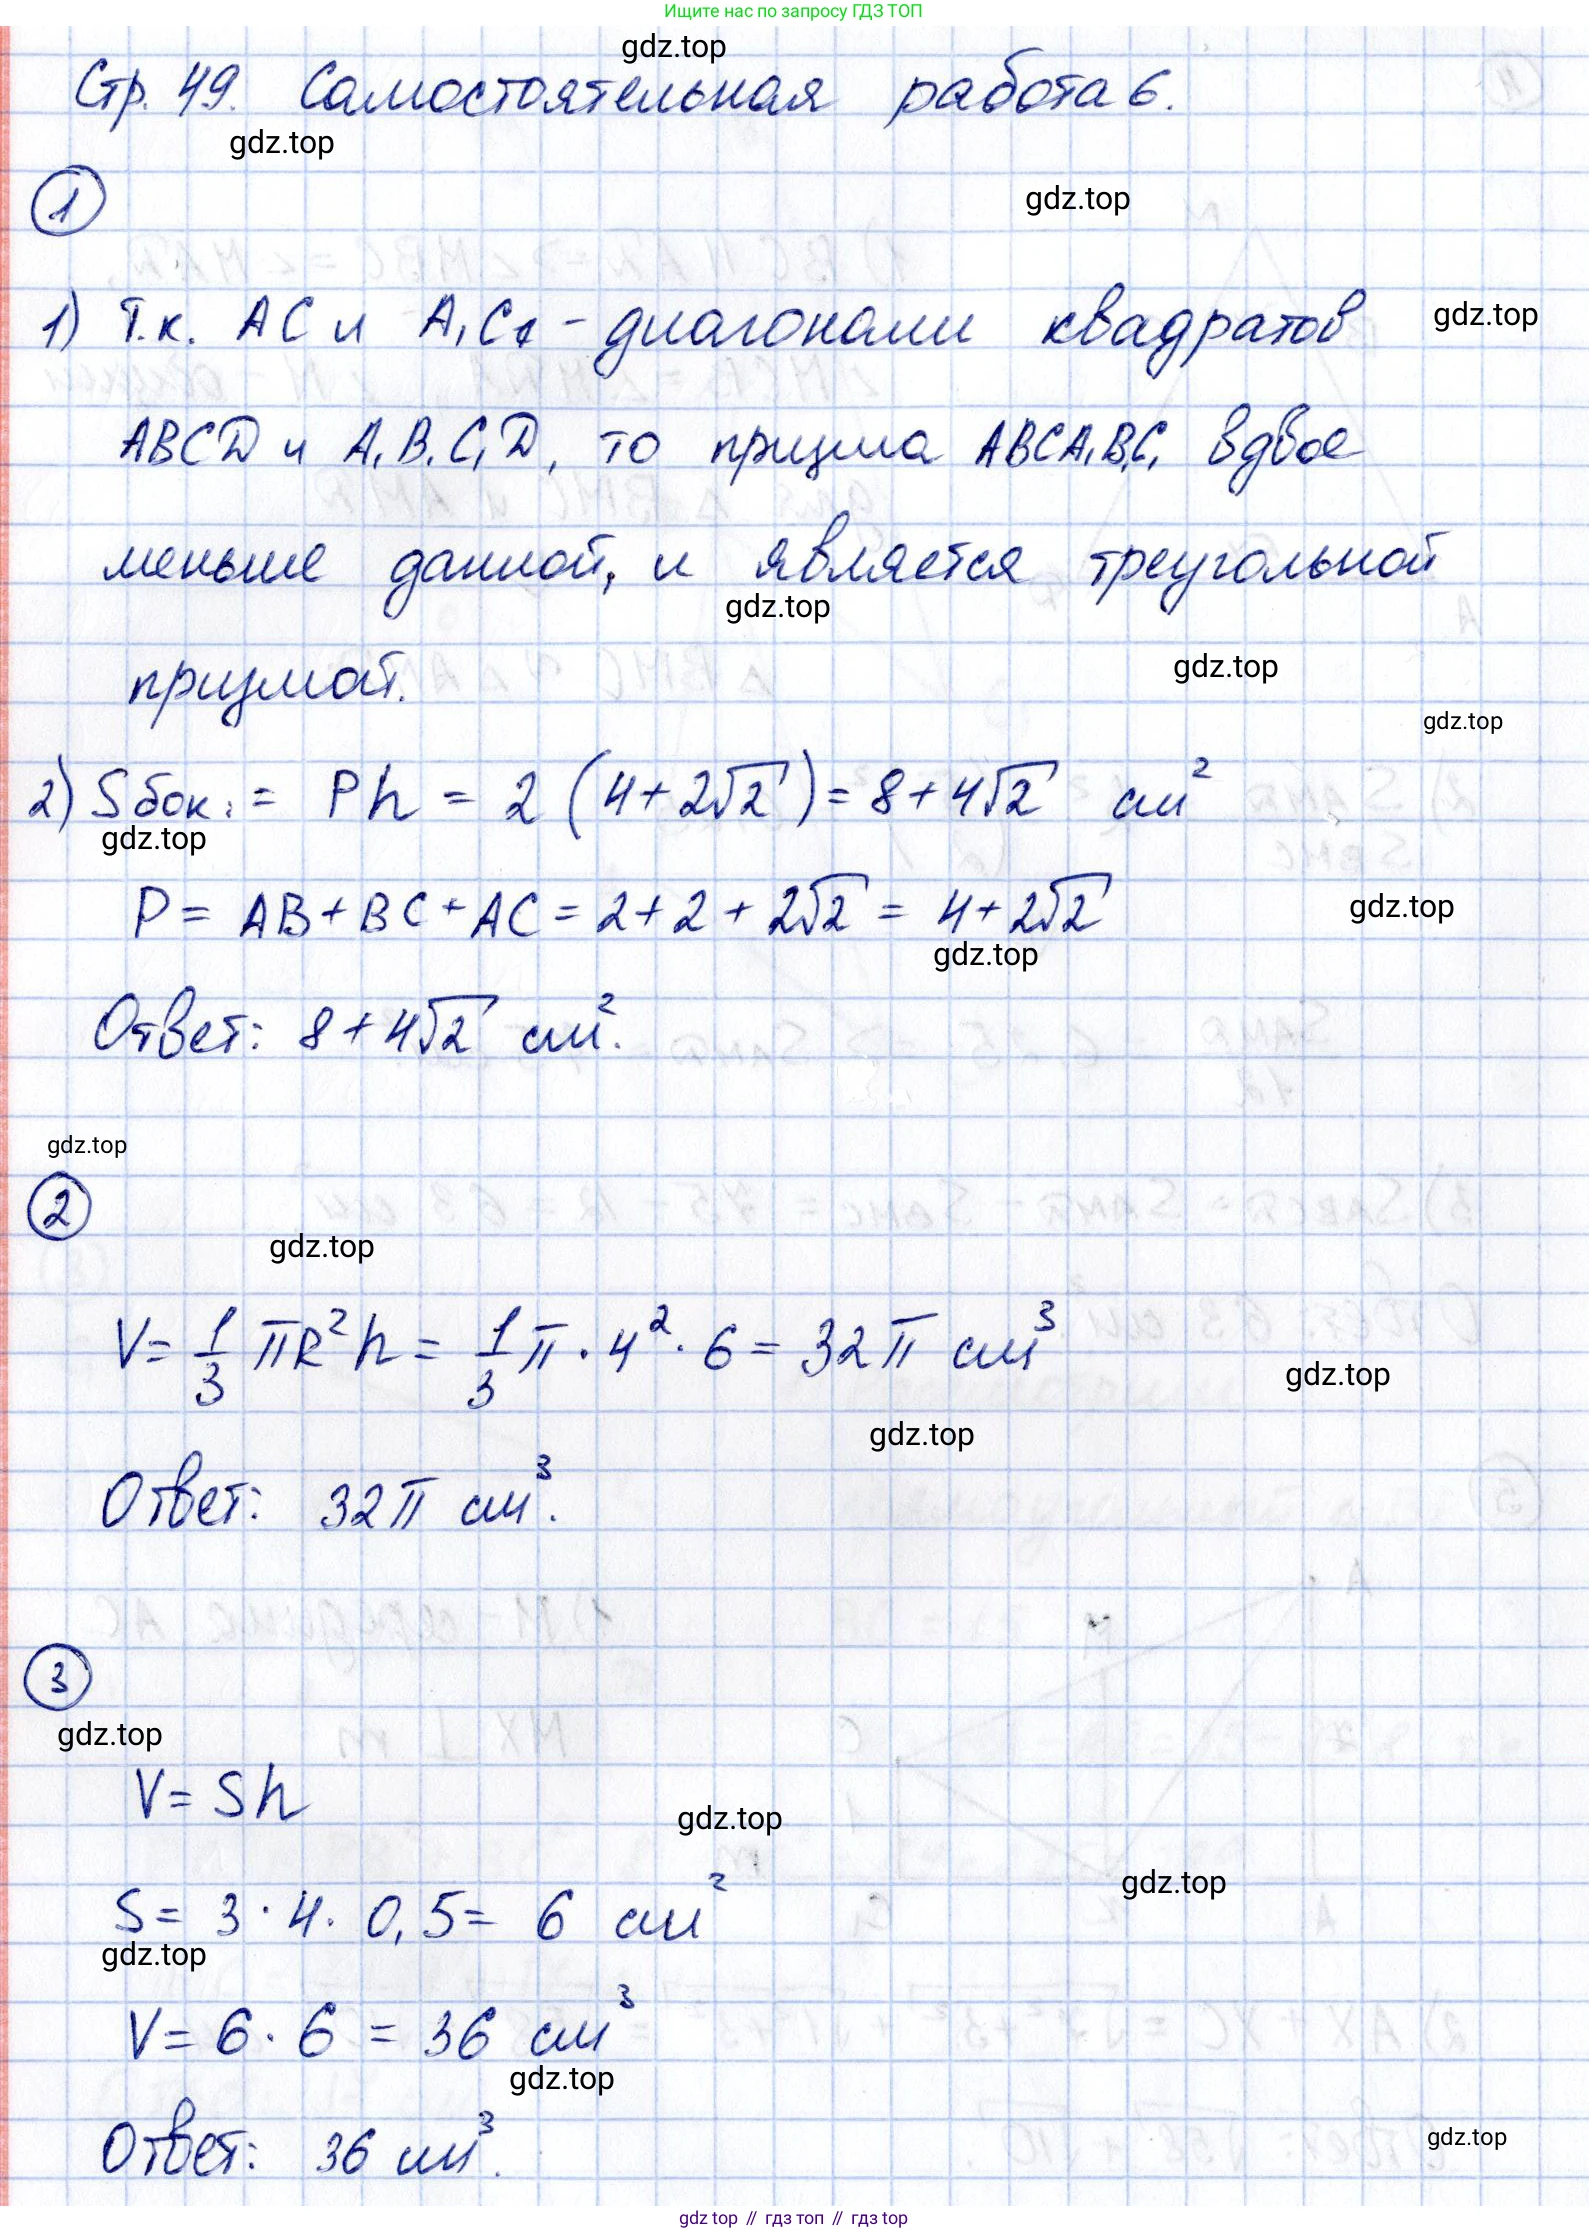 Ищите нас по запросу ГДЗ ТОП
gdz.top
Стр. 49. Самостоятельная работа 6.
gdz.top
gdz.top
1
1) Т.к. AC и A₁C₁ - диагонали квадратов
gdz.top
ABCD и A₁B₁C₁D, то призма ABCA₁B₁C₁ вдвое
меньше данной, и является треугольной
gdz.top
призмой.
gdz.top
gdz.top
2) Sбок. = Ph = 2 (4+2√2) = 8+4√2 см²
gdz.top
P = AB + BC + AC = 2+2+2√2 = 4+2√2
gdz.top
gdz.top
Ответ: 8+4√2 см².
gdz.top
2
gdz.top
V = 1/3 πR²h = 1/3 π · 4² · 6 = 32π см³
gdz.top
gdz.top
Ответ: 32π см³.
3
gdz.top
V = Sh
gdz.top
gdz.top
S = 3 · 4 · 0,5 = 6 см²
gdz.top
V = 6 · 6 = 36 см³
gdz.top
Ответ: 36 см³.
gdz.top
gdz.top // гдз топ // gdz.top